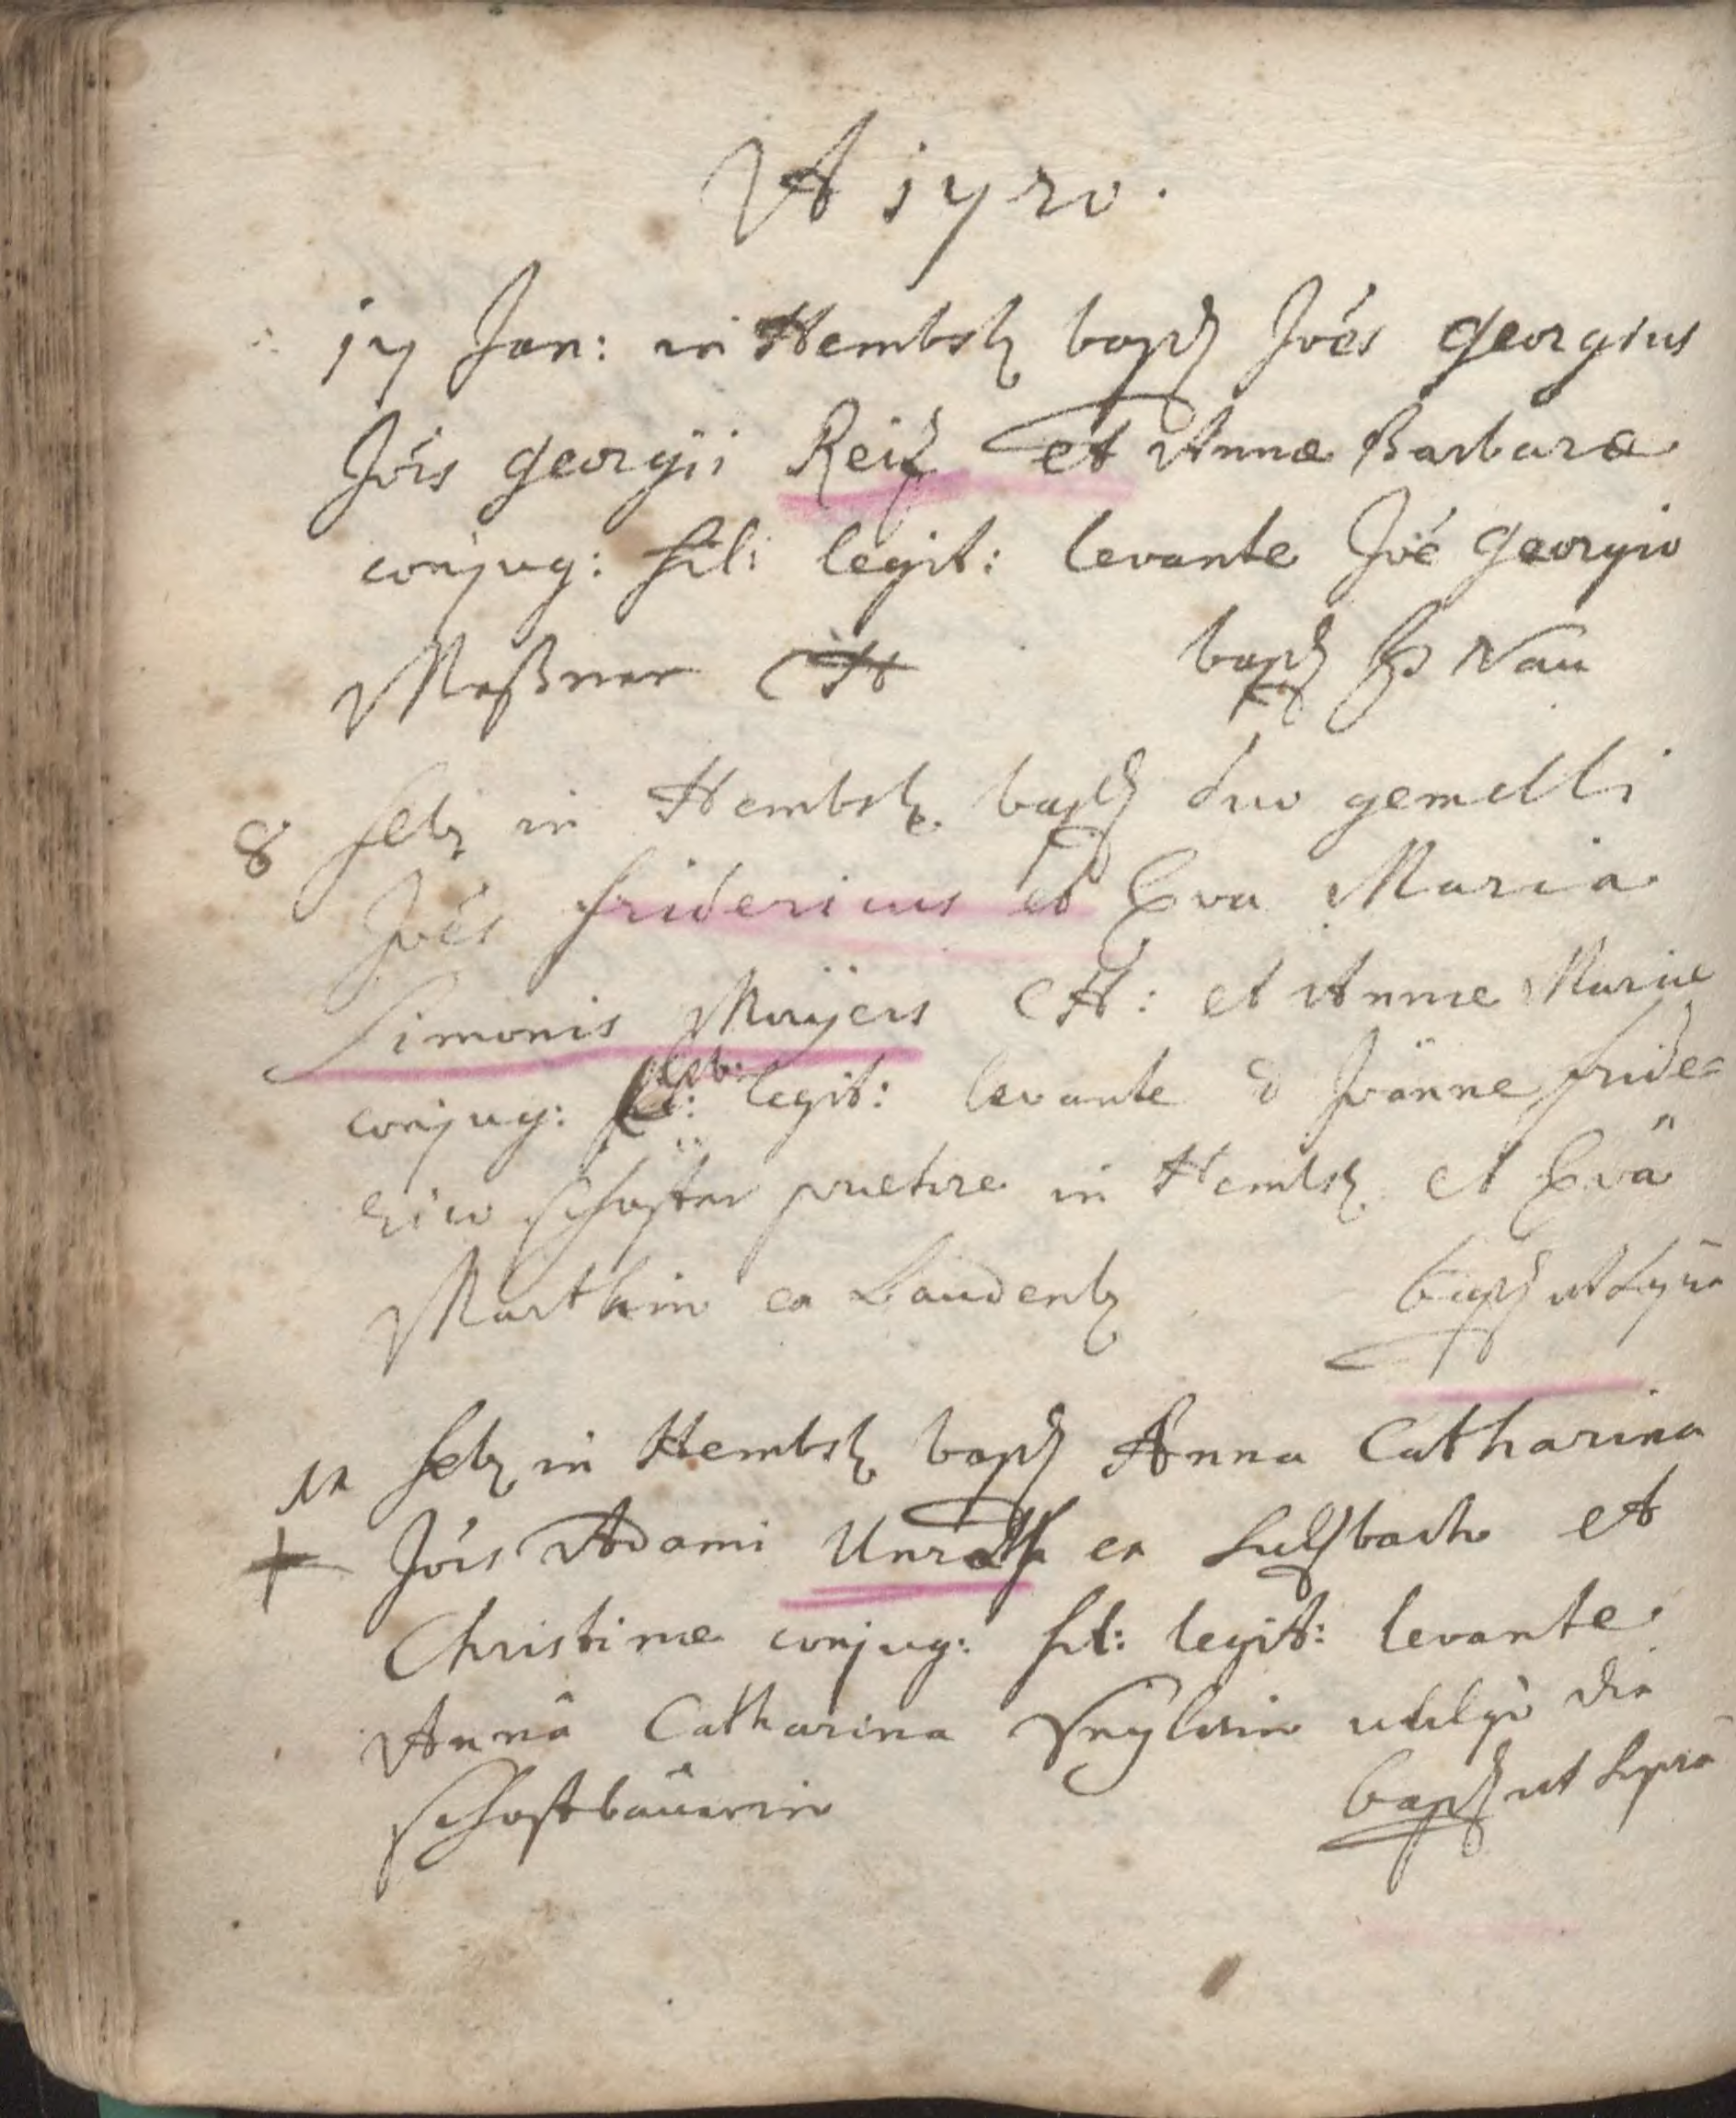 A 1720.
17 Jan: in Hembsb baptz Joés Georgius
Jöis Georgii Reiß et Annæ Barbaræ
conjug: fil: legit: levante Joé Georgio
Meßner baptz P Nau
8 feb in Hembsb baptz duo gemelli
Joés fridericus et Eva Maria
Simonis Mayers CH: et Annæ Mariæ
conjug: legit: levante D Joänne fride=
rico praetore in Hembsb et Evâ
Marthin ex Laudenb baptz ut supra
11 feb in Hembsb baptz Anna Catharina
+ Jöis Adami Unrath ex Sulsbach et
Christinæ conjug: fil: legit: levante
Annâ Catharina vulgò die
baptz ut supra